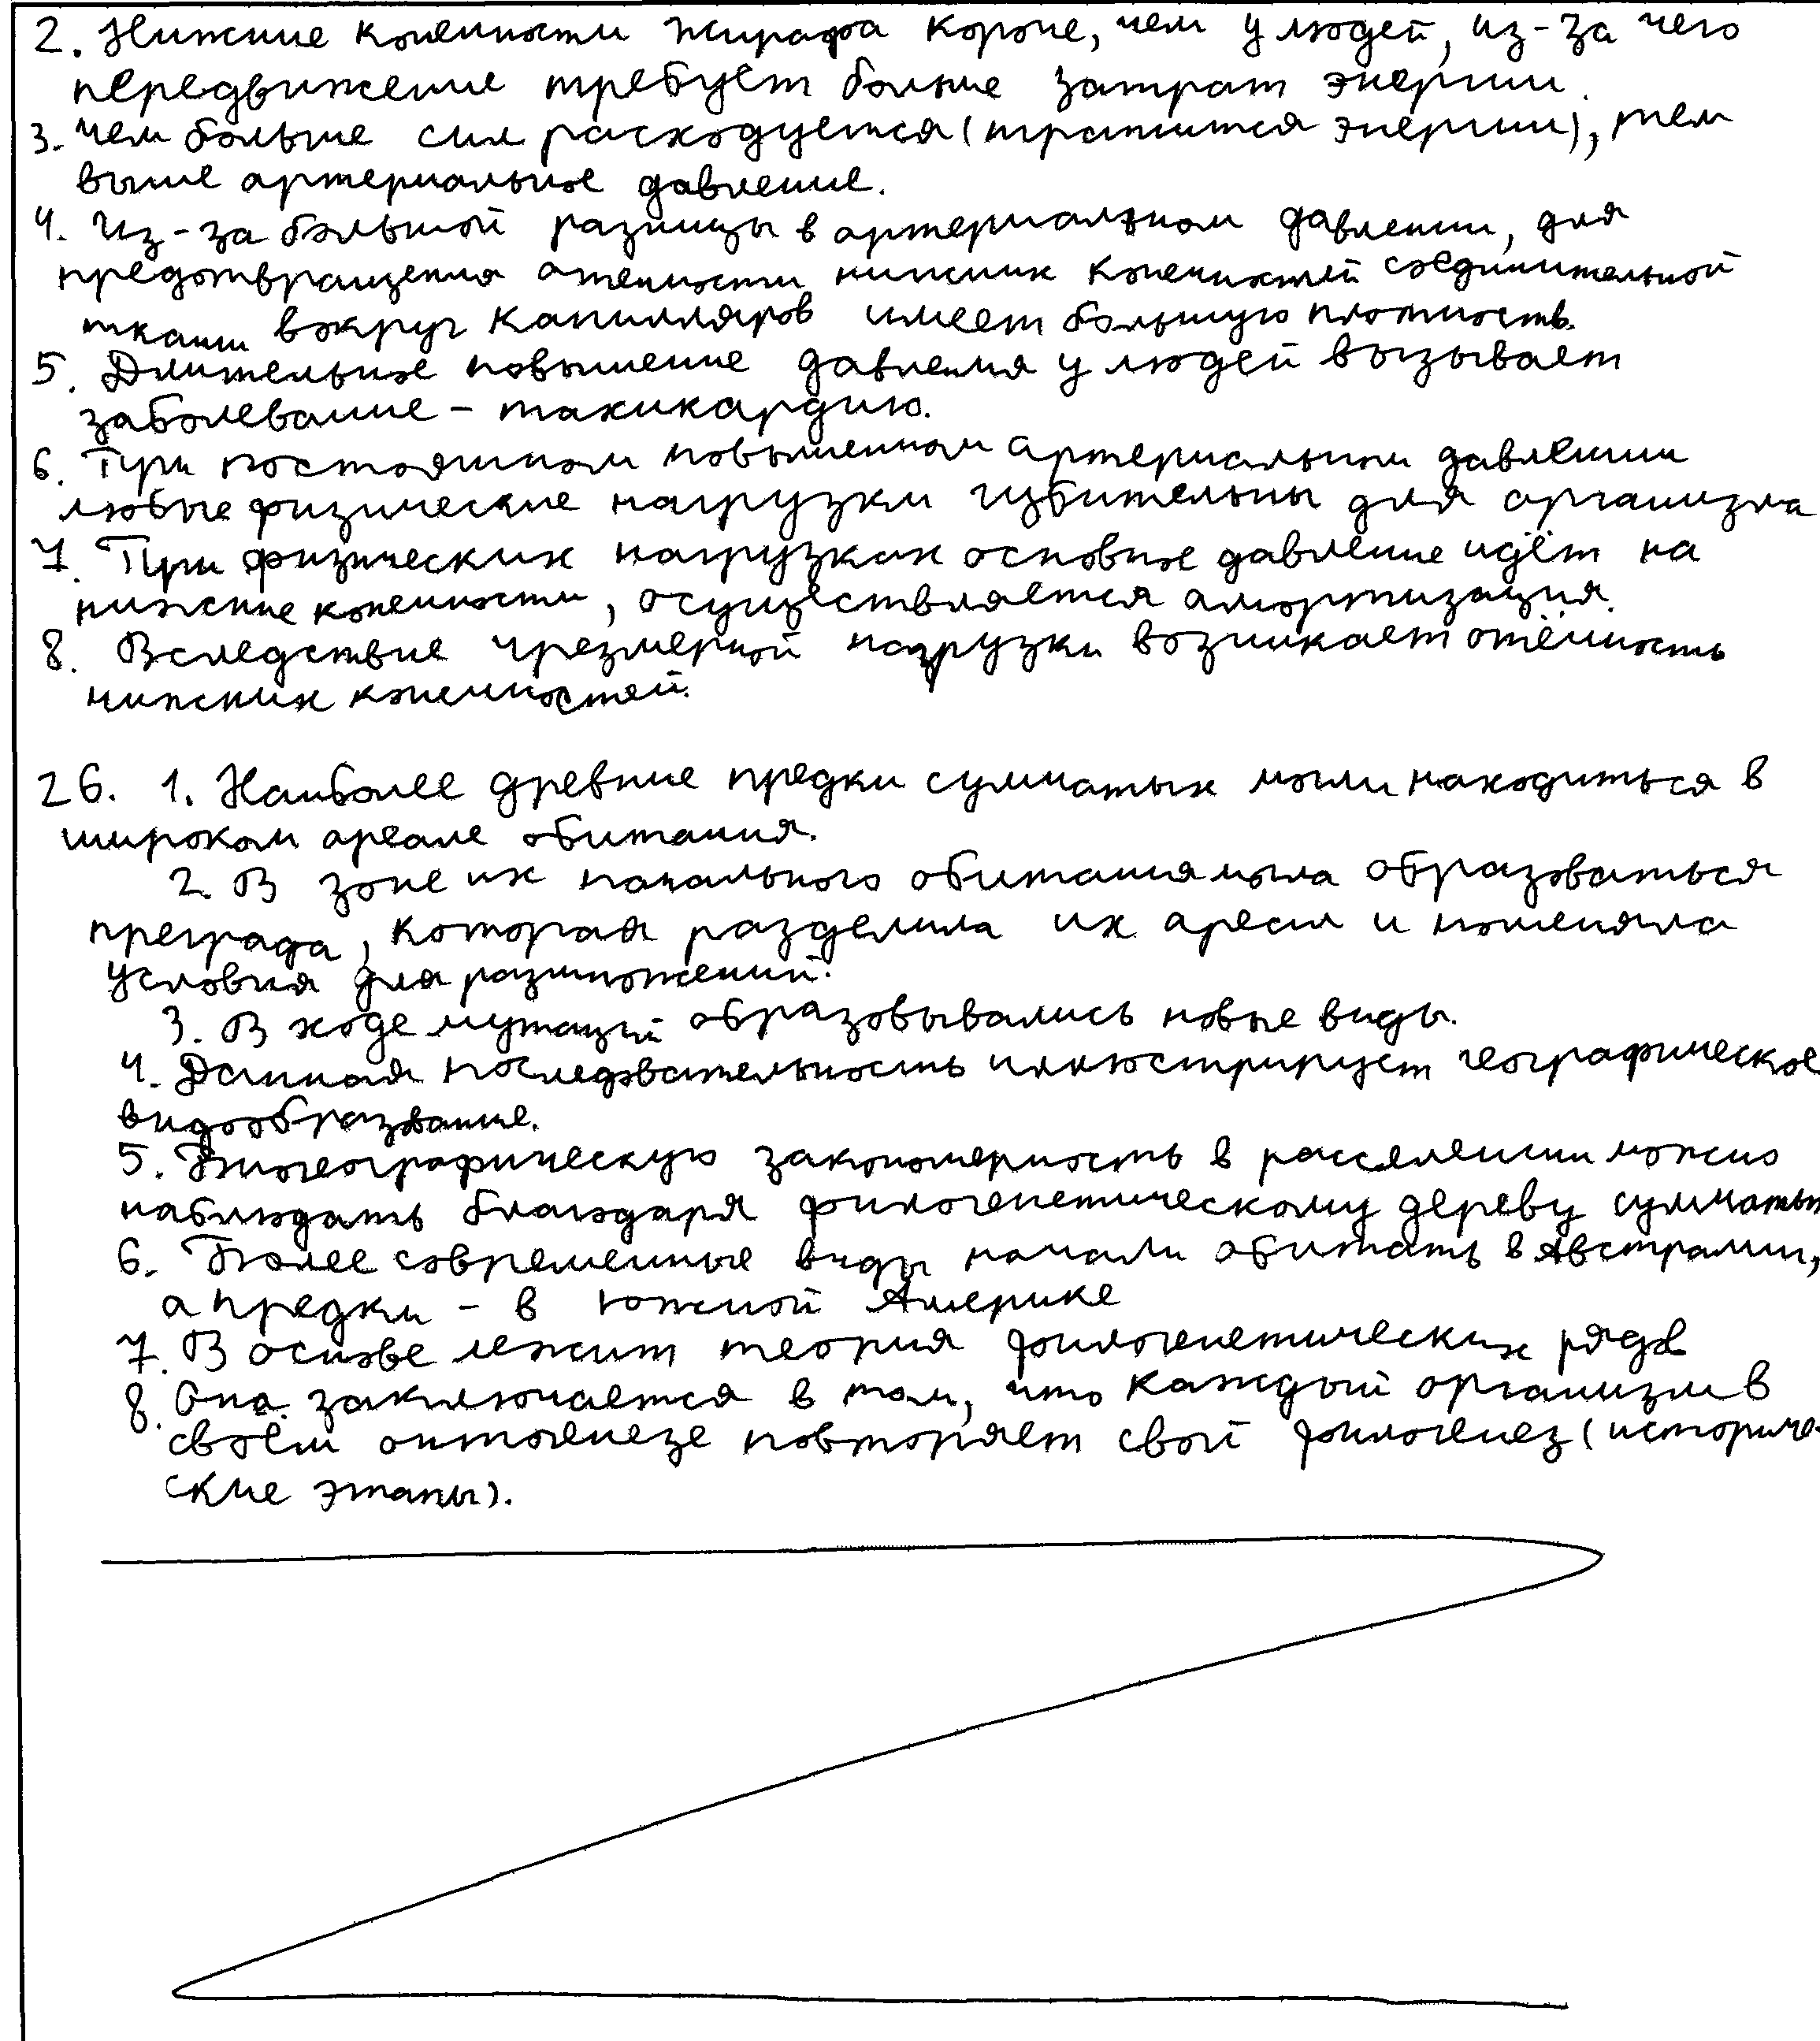 2. Нижние конечности жирафа короче, чем у людей, из-за чего
передвижение требует больше затрат энергии.
3. Чем больше сил расходуется (тратится энергии), тем
выше артериальное давление.
4. Из-за большой разницы в артериальном давлении, для
предотвращения отечности нижних конечностей соединительной
ткани вокруг капилляров имеет большую плотность.
5. Длительное повышение давления у людей вызывает
заболевание - тахикардию.
6. При постоянном повышенном артериальном давлении
любые физические нагрузки губительны для организма
7. При физических нагрузках основное давление идёт на
нижние конечности, осуществляется амортизация.
8. Вследствие чрезмерной нагрузки возникает отёчность
нижних конечностей.
26. 1. Наиболее древние предки сумчатых могли находиться в
широком ареале обитания.
2. В зоне их начального обитания могла образоваться
преграда, которая разделила их ареал и поменяла
условия для размножений.
3. В ходе мутаций образовывались новые виды.
4. Данная последовательность иллюстрирует географическое
видообразование.
5. Биогеографическую закономерность в расселении можно
наблюдать благодаря филогенетическому дереву сумчатых
6. Более современные виды начали обитать в Австралии,
а предки - в Южной Америке
7. В основе лежит теория филогенетических рядов
8. Она заключается в том, что каждый организм в
своём онтогенезе повторяет свой филогенез (историче-
ские этапы).